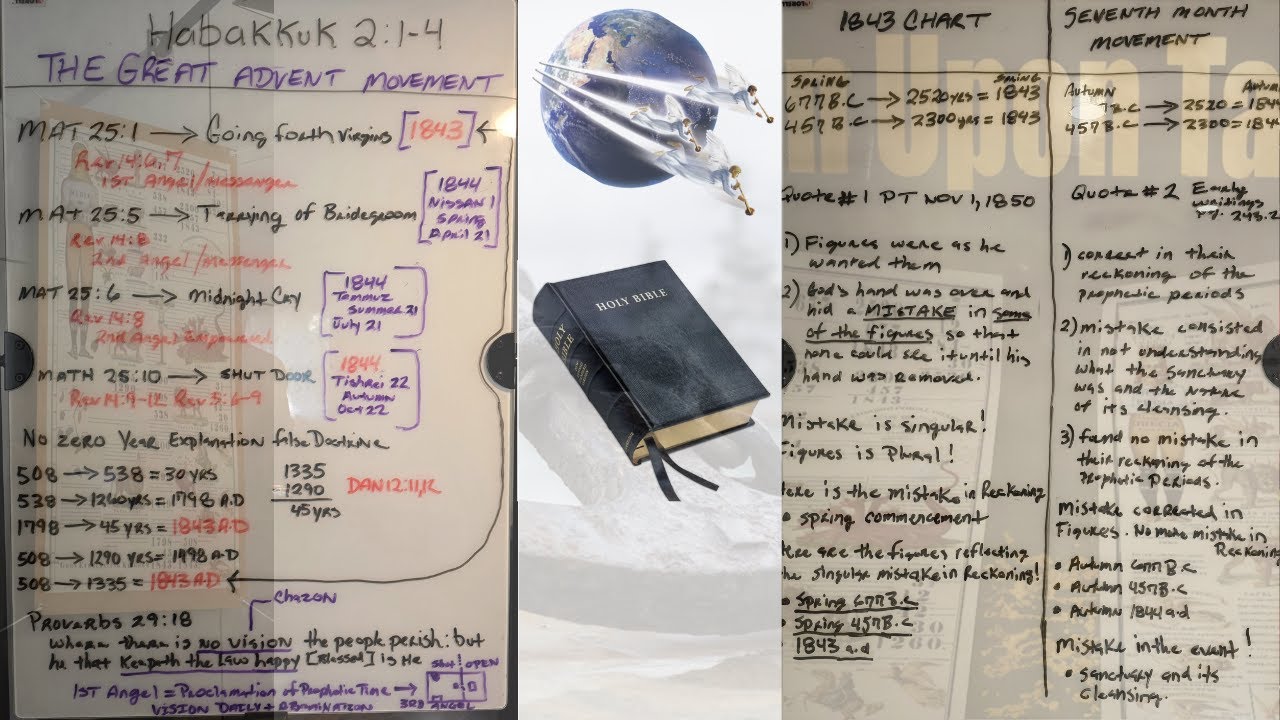 Habakkuk 2:1-4
THE GREAT ADVENT MOVEMENT
MAT 25:1 → Going forth virgins [1843] ←
Rev 14:6,7
1ST Angel/messenger
MAT 25:5 → Tarrying of Bridegroom
1844
NISSAN 1
SPRING
April 21
Rev 14:8
2nd Angel/messenger
MAT 25:6 → Midnight Cry
1844
Tammuz
Summer 21
July 21
Rev 14:8
2nd Angel Empowered
MATH 25:10 → SHUT DOOR
1844
Tishrei 22
Autumn
Oct 22
Rev 14:9-12 Rev 3:6-9
No Zero Year Explanation false Doctrine
508 → 538 = 30 yrs
538 → 1260 yrs = 1798 A.D
1798 → 45 yrs = 1843 A.D
508 → 1290 yrs = 1798 A.D
508 → 1335 = 1843 A.D
1335
1290
45 yrs
DAN 12:11,12
Chazon
Proverbs 29:18
where there is no vision the people perish: but
he that keepeth the law happy [Blessed] is He
1ST Angel = Proclamation of Prophetic Time →
VISION DAILY +
Shut OPEN
3RD ANGEL
HOLY BIBLE
HOLY BIBLE
1843 CHART
SPRING SPRING
677 B.C → 2520 yrs = 1843
457 B.C → 2300 yrs = 1843
Quote #1 PT NOV 1, 1850
1) Figures were as he
wanted them
2) God's hand was over and
hid a MISTAKE in some
of the figures so that
none could see it until his
hand was removed.
Mistake is singular!
Figures is Plural!
Here is the mistake in Reckoning
spring commencement
Here are the figures reflecting
the singular mistake in Reckoning!
• Spring 677 B.C
• Spring 457 B.C
• 1843 a.d
SEVENTH MONTH
MOVEMENT
Autumn
B.C → 2520 = 184
457 B.C → 2300 = 184
Quote #2 Early
writings
pg. 243.2
1) correct in their
reckoning of the
prophetic periods
2) mistake consisted
in not understanding
what the sanctuary
was and the nature
of its cleansing.
3) found no mistake in
their reckoning of the
Prophetic Periods.
Mistake corrected in
Figures. No more mistake in
Reckoning
• Autumn 677 B.C
• Autumn 457 B.C
• Autumn 1844 a.d
Mistake in the event!
• Sanctuary and its
cleansing.
n Upon Ta